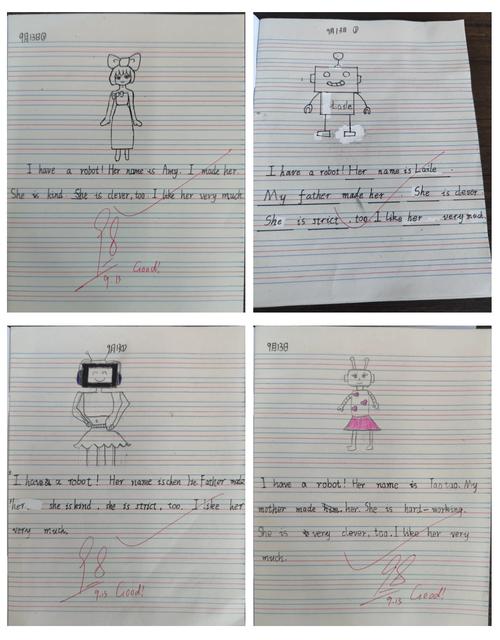 9月13日
I have a robot! Her name is Amy. I made her.
She is kind. She is clever, too. I like her very much.
98
9.13 Good!
9月13日
Laile
I have a robot! Her name is Laile.
My father made her. She is clever
She is strict, too. I like her very much.
9月13日
I have a robot! Her name is chen
Father made
her. she is kind. she is strict, too. I like her
very much.
98
9.13 Good!
9月13日
I have a robot! Her name is Taotao. My
mother made her. She is hard-working.
She is very clever, too. I like her very
much.
98
9.13 Good!